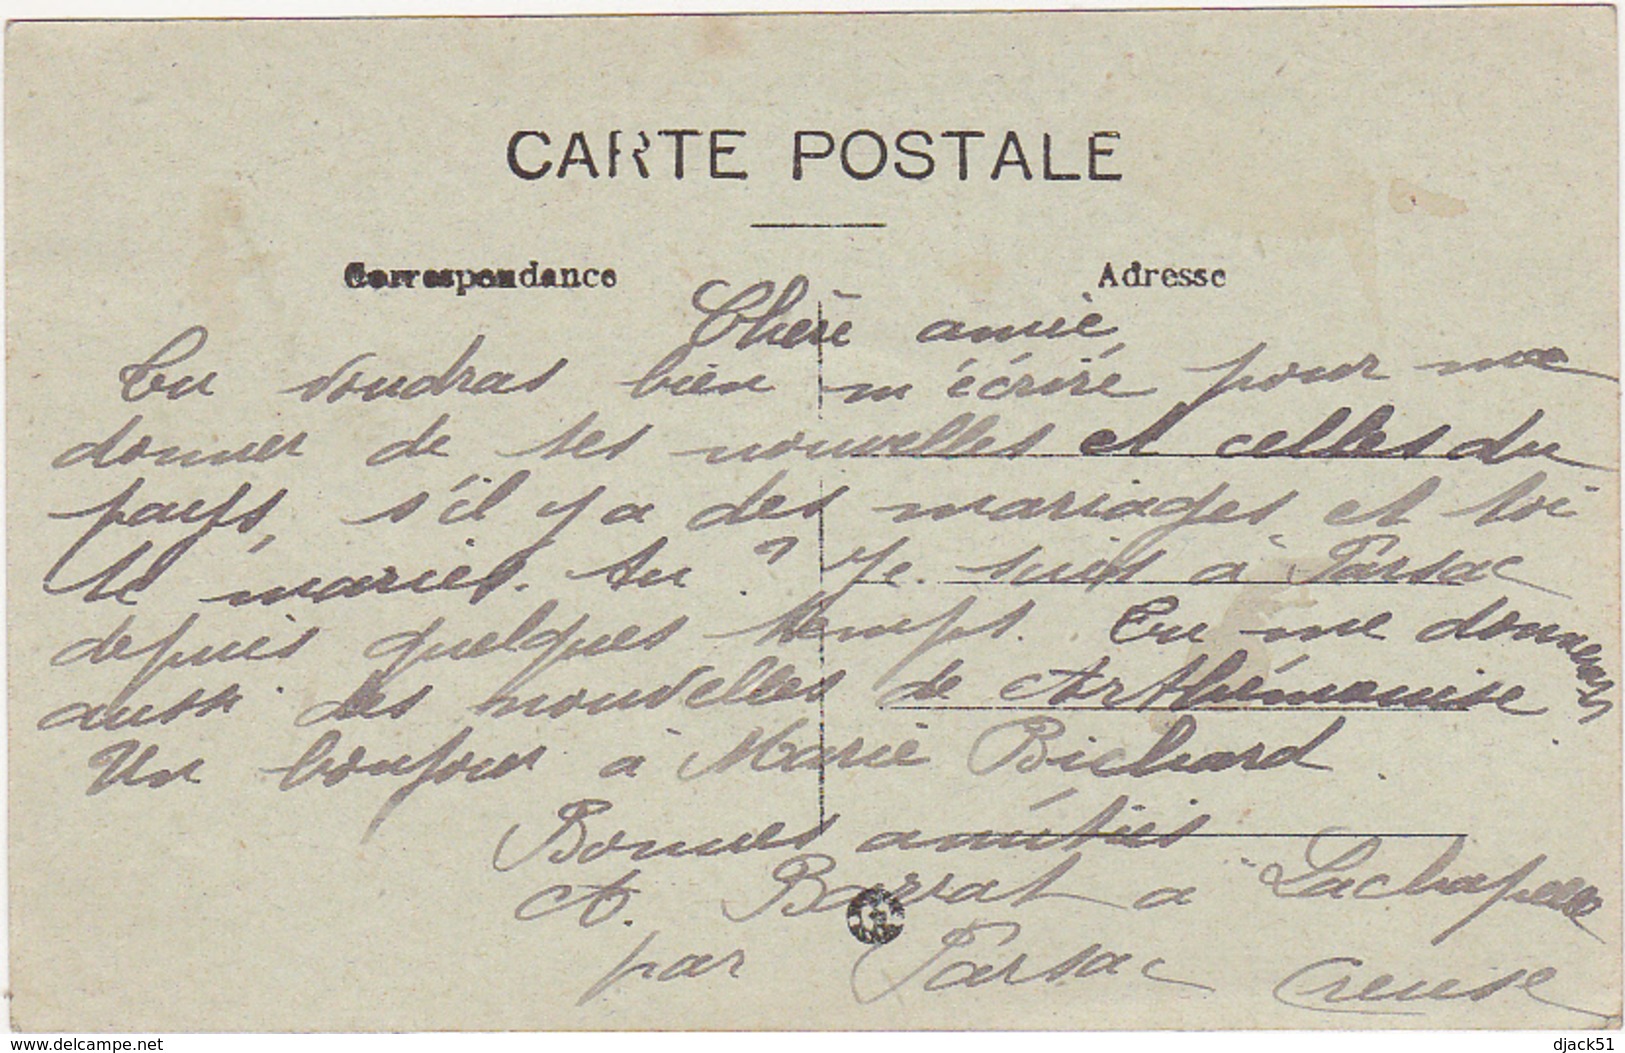 CARTE POSTALE
Correspondance
Adresse
Chère amie,
Tu voudras bien m'écrire pour me
donner de tes nouvelles et celles du
pays, s'il y a des mariages et toi
te maries. tu ? Je suis à Parsac
depuis quelques temps. Tu me donneras
aussi des nouvelles de Arthémouise
Un bonjour à Marie Bichard.
Bonnes amitiés
A. Barrat à Lachapelle
par Parsac Creuse
www.delcampe.net
djack51